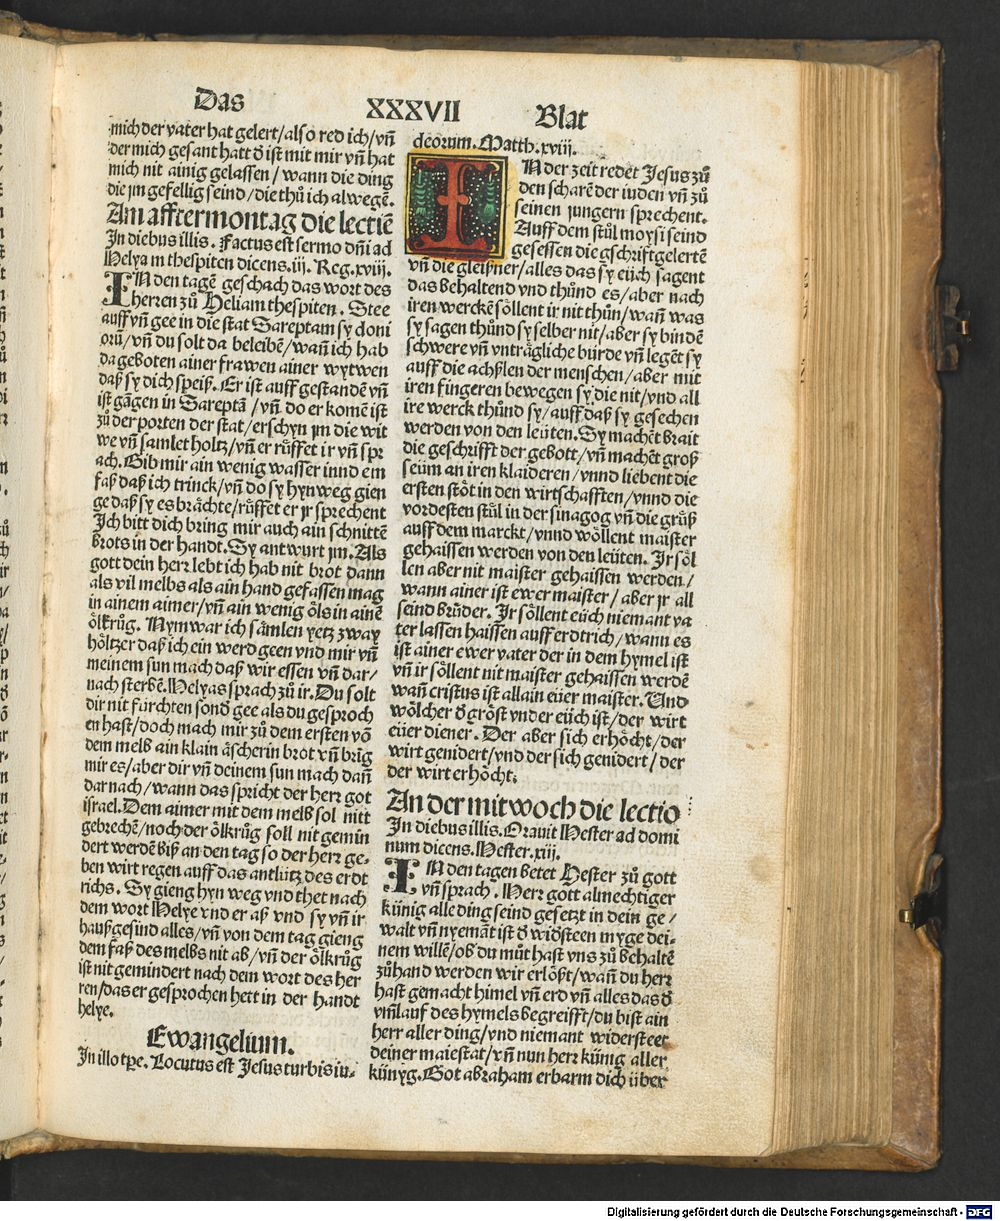 Das XXXVII Blat
mich der vater hat gelert/also red ich/vn̄
der mich gesant hatt d̕ ist mit mir vn̄ hat
mich nit ainig gelassen/wann die ding
die jm gefellig seind/die thů ich alwegē.
Am afftermontag die lectiē
In diebus illis. Factus est sermo dn̄i ad
Helyam thespiten dicens.iij. Reg.xviij.
IN den tagē geschach das wort des
herren zů Heliam thespiten. Stee
auff vn̄ gee in die stat Sareptam sy doni
orū/vn̄ du solt da beleibē/wan̄ ich hab
da geboten ainer frawen ainer wytwen
daß sy dich speiß. Er ist auff gestandē vn̄
ist gāgen in Sareptā/vn̄ do er komē ist
zů der porten der stat/erschyn jm die wit
we vn̄ samlet holtz/vn̄ er růffet ir vn̄ spr
ach. Gib mir ain wenig wasser innd em
faß daß ich trinck/vn̄ do sy hyn weg gien
ge daß sy es brächte/růffet er jr sprechent
Ich bitt dich bring mir auch ain schnittē
brots in der handt. Sy antwurt jm. Als
gott dein herr lebt ich hab nit brot dann
als vil melbs als ain hand gefassen mag
in ainem aimer/vn̄ ain wenig öls in ainē
ölkrůg. Nym war ich sämlen yetz zway
höltzer daß ich ein werd geen vnd mir vn̄
meinem sun mach daß wir essen vn̄ dar/
nach sterbē. Helyas sprach zů ir. Du solt
dir nit fürchten sond̕ gee als du gesproch
en hast/doch mach mir zů dem ersten vō
dem melb ain klain äscherin brot vn̄ brīg
mir es/aber dir vn̄ deinem sun mach dan̄
dar nach/wann das spricht der herr got
israel. Dem aimer mit dem melb sol nitt
gebrechē/noch der ölkrůg soll nit gemin
dert werdē biß an den tag so der herr ge-
ben wirt regen auff das antlütz des erdt
richs. Sy gieng hyn weg vnd thet nach
dem wort Helye vnd er aß vnd sy vn̄ ir
haußgesind alles/vn̄ von dem tag gieng
dem faß des melbs nit ab/vn̄ der ölkrůg
ist nit gemindert nach dem wort des her
ren/das er gesprochen hett in der handt
helye.
Ewangelium.
In illo tp̄e. Locutus est Jesus turbis iu-
deorum. Matth.xviij.
IN der zeit redet Jesus zů
den scharē der iuden vn̄ zů
seinen jungern sprechent.
Auff dem stůl moysi seind
gesessen die gschriftgelertē
vn̄ die gleißner/alles das sy eüch sagent
das behaltend vnd thůnd es/aber nach
iren werckē söllent ir nit thůn/wan̄ was
sy sagen thůnd sy selber nit/aber sy bindē
schwere vn̄ vnträgliche bürde vn̄ legēt sy
auff die achßlen der menschen/aber mit
iren fingeren bewegen sy die nit/vnd all
ire werck thůnd sy/auff daß sy gesechen
werden von den leüten. Sy machēt brait
die geschrifft der gebott/vn̄ machēt groß
seüm an iren klaideren/vnnd liebent die
ersten stöt in den wirtschafften/vnnd die
vordesten stůl in der sinagog vn̄ die grůß
auff dem marckt/vnnd wöllent maister
gehaissen werden von den leüten. Ir söl
len aber nit maister gehaissen werden/
wann ainer ist ewer maister/aber jr all
seind brůder. Ir söllent eüch niemant va
ter lassen haissen auff erdtrich/wann es
ist ainer ewer vater der in dem hymel ist
vn̄ ir söllent nit maister gehaissen werdē
wan̄ cristus ist allain eüer maister. Und
wölcher d̕ gröst vnder eüch ist/der wirt
eüer diener. Der aber sich erhöcht/der
wirt genidert/vnd der sich genidert/der
der wirt erhöcht.
An der mitwoch die lectio
In diebus illis. Orauit Hester ad domi
num dicens. Hester.xiij.
IN den tagen betet Hester zů gott
vn̄ sprach. Herr gott almechtiger
künig alle ding seind gesetzt in dein ge/
walt vn̄ nyemāt ist d̕ wid̕steen myge dei-
nem willē/ob du můst hast vns zů behaltē
zůhand werden wir erlößt/wan̄ du herr
hast gemacht himel vn̄ erd vn̄ alles das d̕
vm̄lauf des hymels begreifft/du bist ain
herr aller ding/vnd niemant widersteet
deiner maiestat/vn̄ nun herr künig aller
künyg. Got abraham erbarm dich über
Digitalisierung gefördert durch die Deutsche Forschungsgemeinschaft - DFG